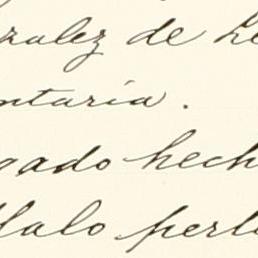 zalez de Le
ntaria.
gado hech
falo perte